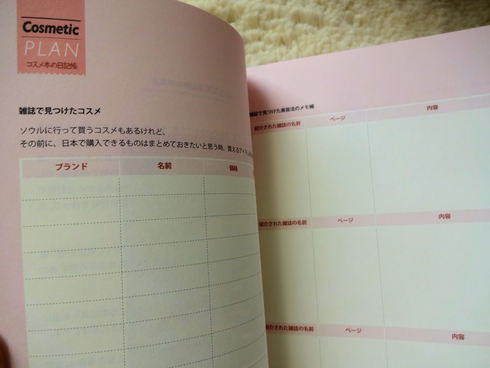 Cosmetic
PLAN
コスメ本の日記帳
雑誌で見つけたコスメ
ソウルに行って買うコスメもあるけれど、
その前に、日本で購入できるものはまとめておきたいと思う時。買えるアイ
ブランド 名前 価格
雑誌で見つけた美容法のメモ帳
紹介された雑誌の名前 ページ 内容
紹介された雑誌の名前 ページ 内容
紹介された雑誌の名前 ページ 内容